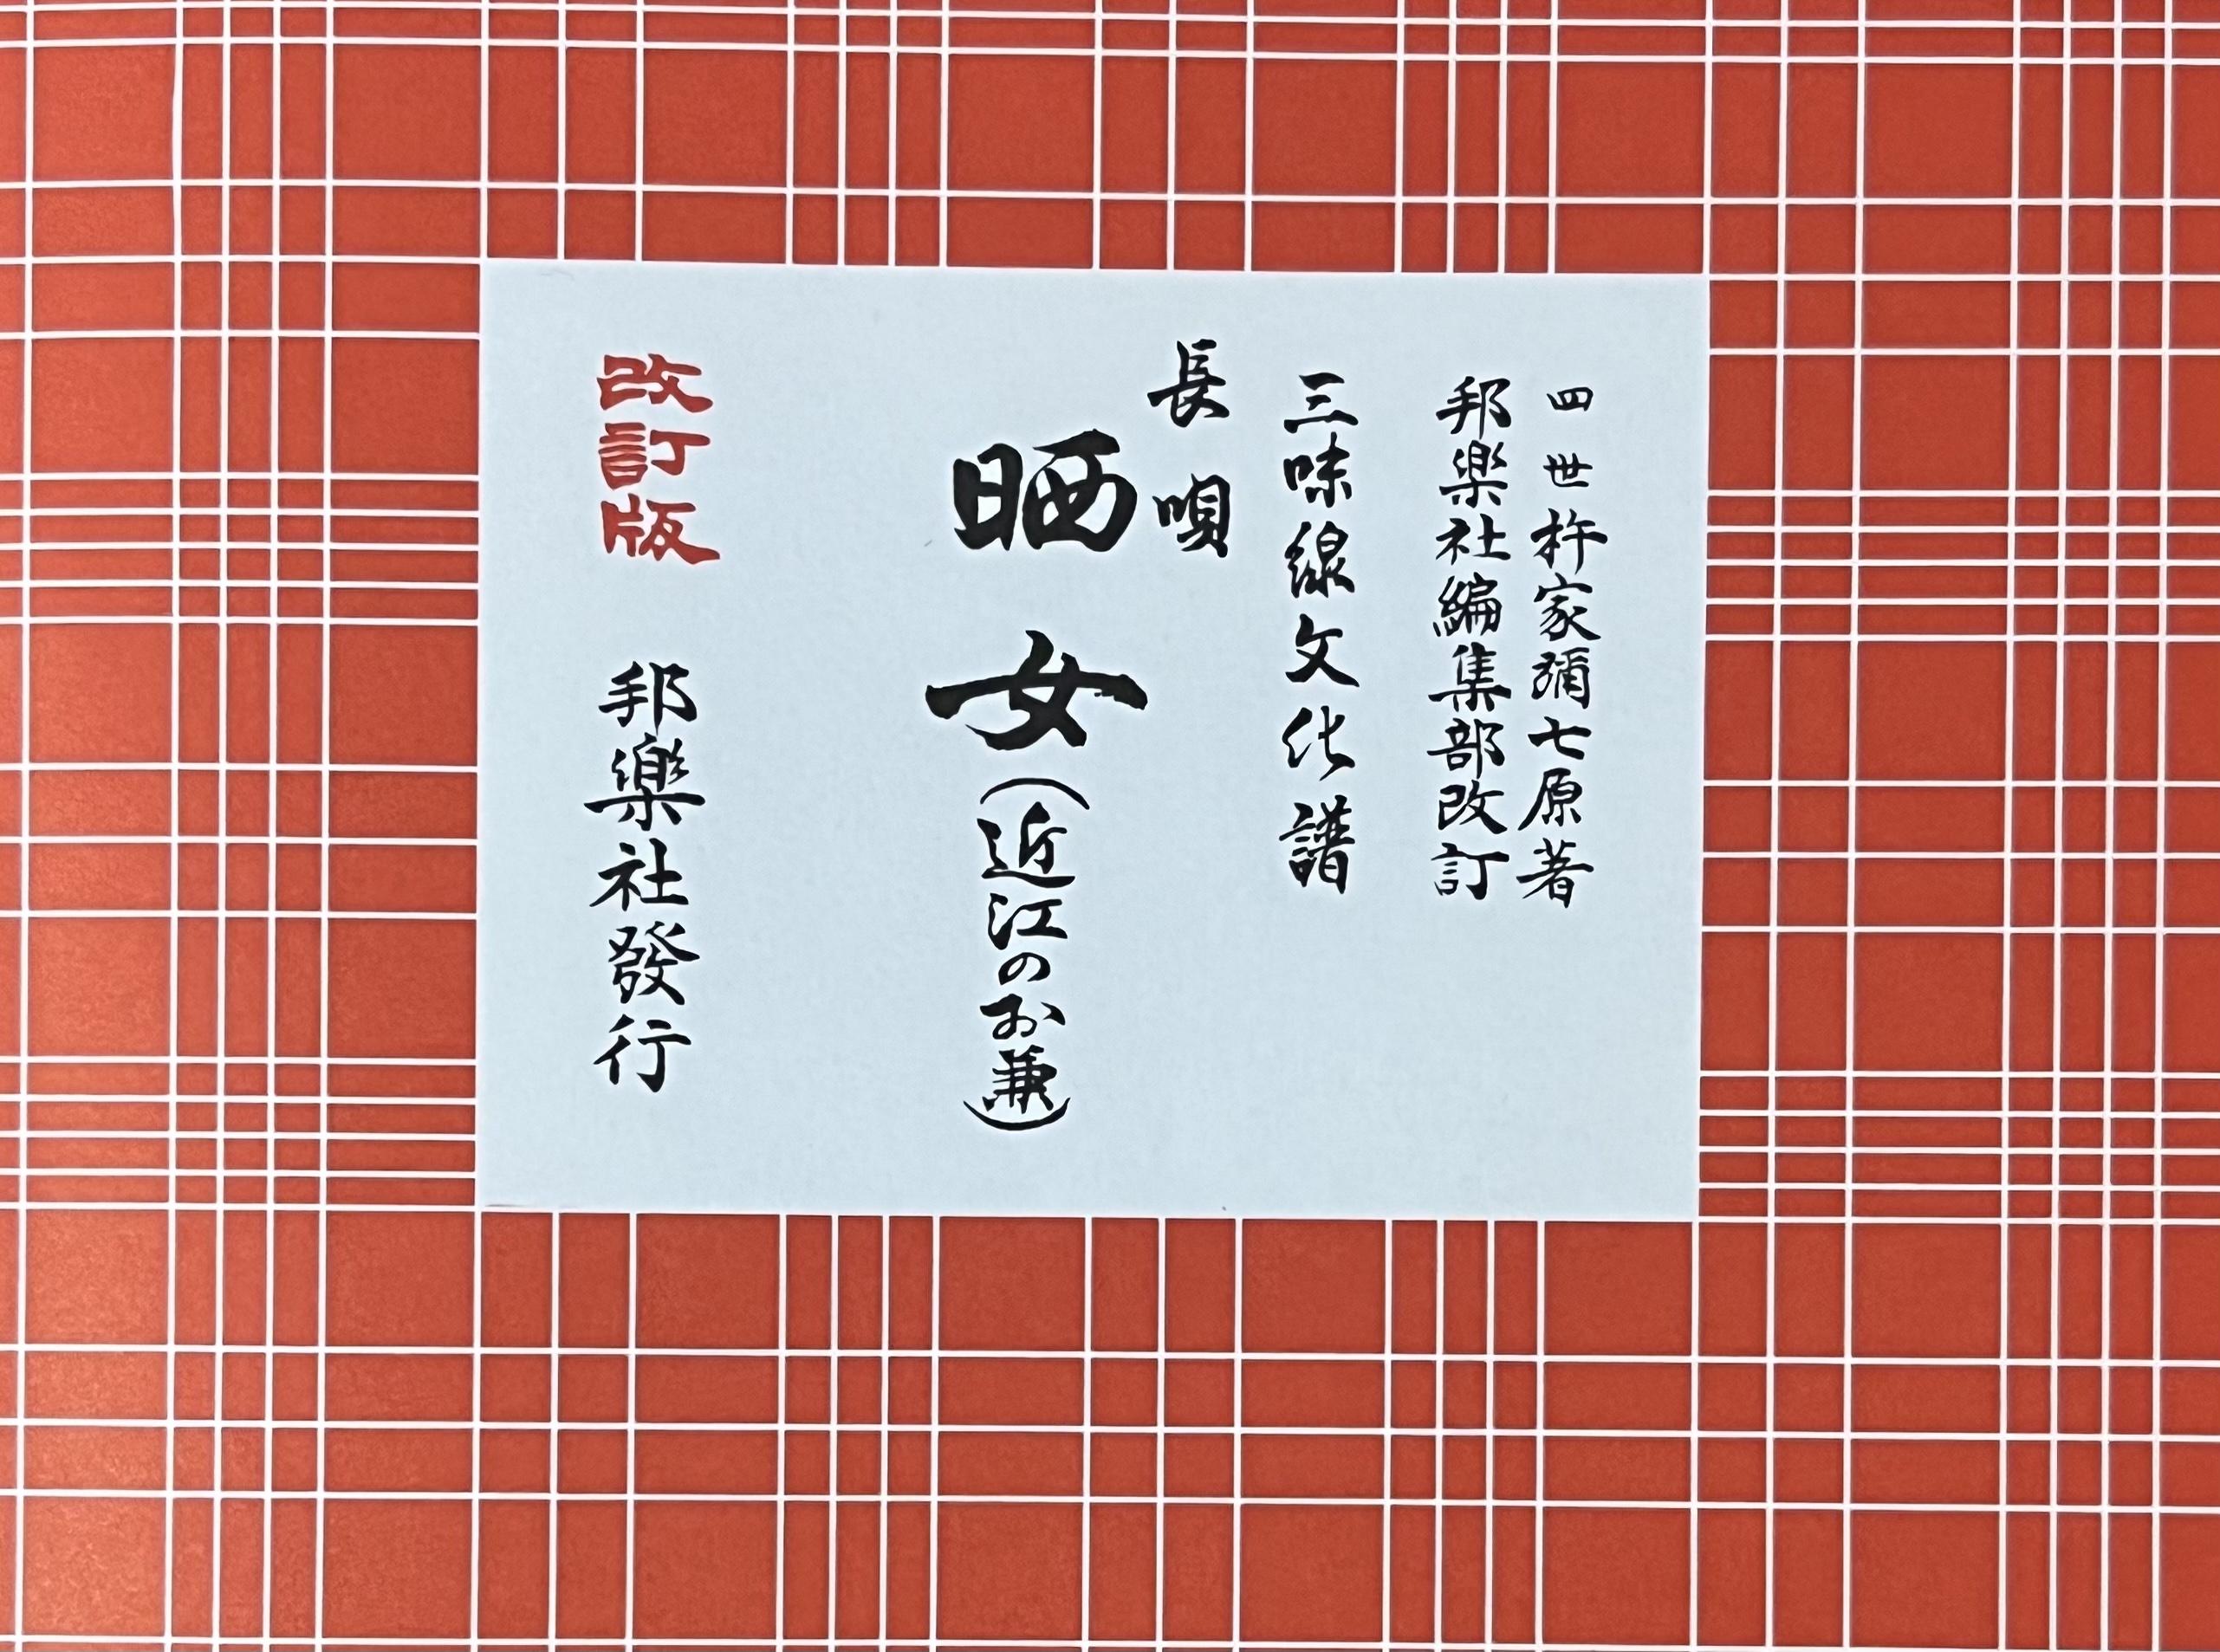 四世杵家彌七原著
邦楽社編集部改訂
三味線文化譜
長唄
晒女(近江のお兼)
改訂版 邦樂社發行